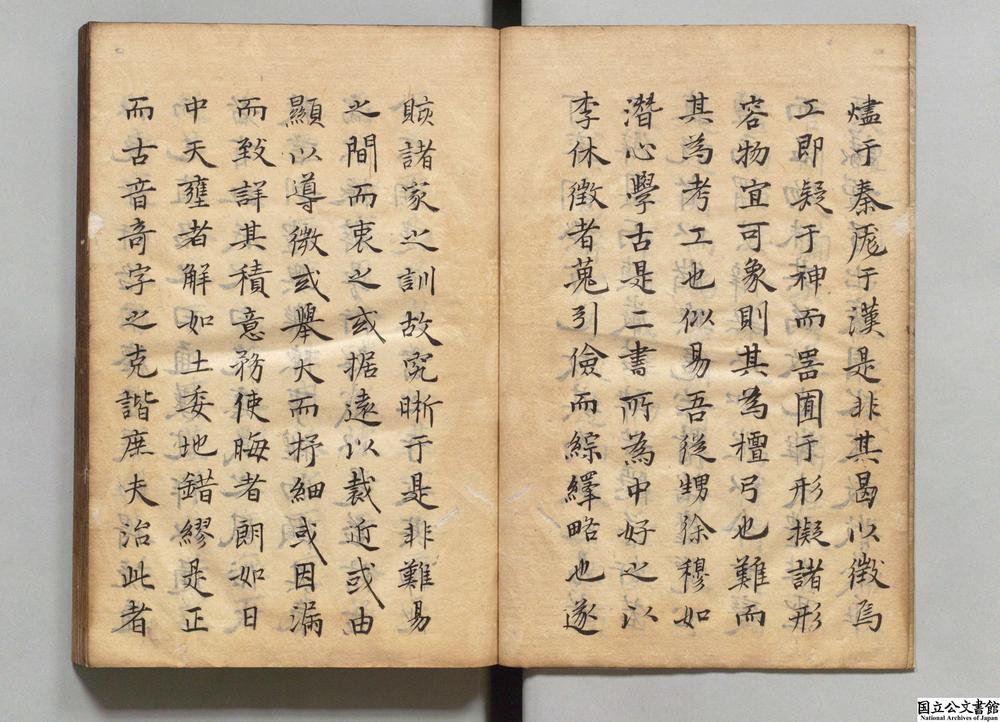 燼于秦厖于漢是非其曷以徴焉
工即疑于神而器囿于形擬諸形
容物宜可象則其為檀弓也難而
其為考工也似易吾從甥徐穆如
潛心學古是二書所為中好之以
李休徴者蒐引儉而綜繹略也遂
賅諸家之訓故究晰于是非難易
之間而衷之或据遠以裁近或由
顯以導微或舉大而抒細或因漏
而致詳其積意務使晦者朗如日
中天壅者解如土委地錯繆是正
而古音奇字之克諧庶夫治此者
国立公文書館
National Archives of Japan